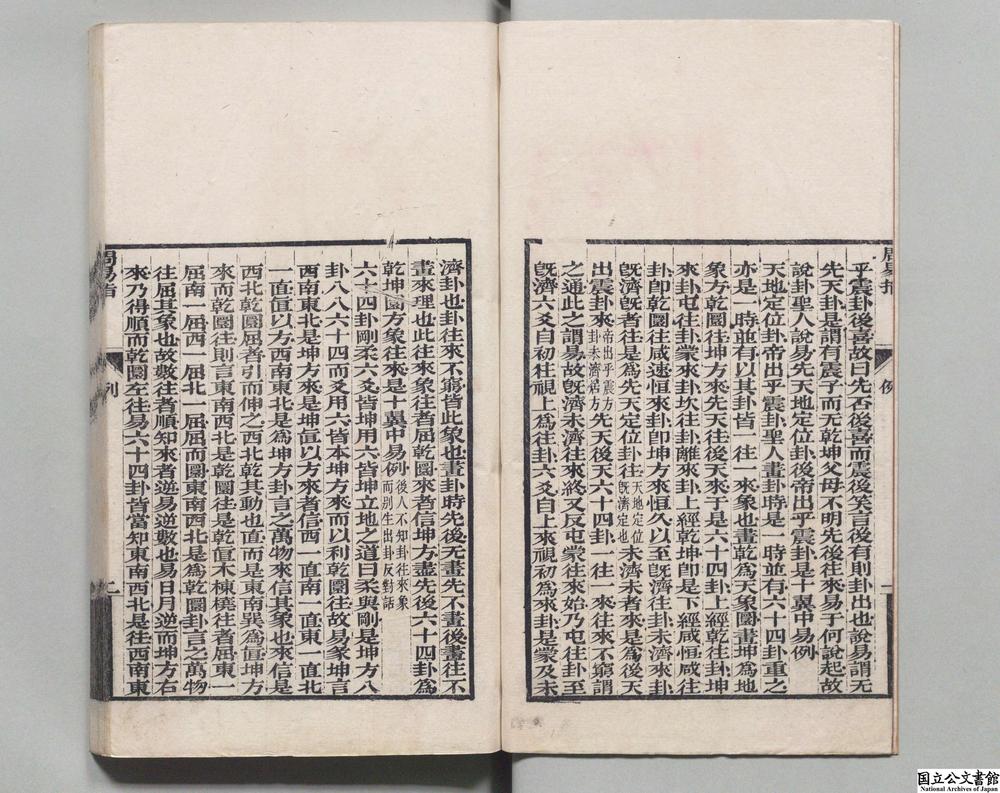 乎震卦後喜故曰先否後喜而震後笑言後有則卦出也說易謂无
先天卦是謂有震子而无乾坤父母不明先後往來易于何說起故
說卦聖人說易先天地定位卦後帝出乎震卦是十翼中易例
天地定位卦帝出乎震卦聖人畫卦時是一時並有六十四卦重之
亦是一時並有以其卦皆一往一來象也畫乾爲天象圜畫坤爲地
象方乾圜往坤方來先天往後天來于是六十四卦上經乾往卦坤
來卦屯往卦蒙來卦坎往卦離來卦上經乾坤卽是下經咸恒咸往
卦卽乾圜往咸速恒來卦卽坤方來恒久以至旣濟往卦未濟來卦
旣濟旣者往是爲先天定位卦往天地定位旣濟定也未濟未者來是爲後天
出震卦來帝出乎震方卦未濟居方先天後天六十四卦一往一來往來不窮謂
之通此之謂易故旣濟未濟往來終又反屯蒙往來始乃屯往卦至
旣濟六爻自初往視上爲往卦六爻自上來視初爲來卦是蒙及未
周易指
例
一
濟卦也卦往來不窮皆此象也畫卦時先後无畫先不畫後畫往不
畫來理也此往來象往者屈乾圜來者信坤方盡先後六十四卦爲
乾坤圜方象往來是十翼中易例後人不知卦往來象而別生出卦反對話
六十四卦剛柔六爻皆坤用六皆坤立地之道曰柔與剛是坤方八
卦八八六十四而爻用六皆本坤方來而以利乾圜往故易象坤言
西南東北是坤方來是坤直以方來者信西一直南一直東一直北
一直直以方西南東北是爲坤方卦言之萬物來信其象也來信是
西北乾圜屈者引而伸之西北乾其動也直而是東南巽爲直坤方
來而乾圜往則言東南西北是乾圜往是乾直木棟橈往者屈東一
屈南一屈西一屈北一屈屈而圜東南西北是爲乾圜卦言之萬物
往屈其象也故數往者順知來者逆易逆數也易日月逆而坤方右
來乃得順而乾圜左往易六十四卦皆當知東南西北是往西南東
周易指
例
二
国立公文書館
National Archives of Japan